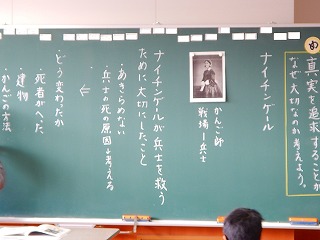 め
真実を追求することが
なぜ大切なのか考えよう。
ナイチンゲール
かんご師
戦場―兵士
ナイチンゲールが兵士を救う
ために大切にしたこと
・あきらめない
・兵士の死の原因を考える
⇓
・どう変わったか
・死者がへった
・建物
・かんごの方法